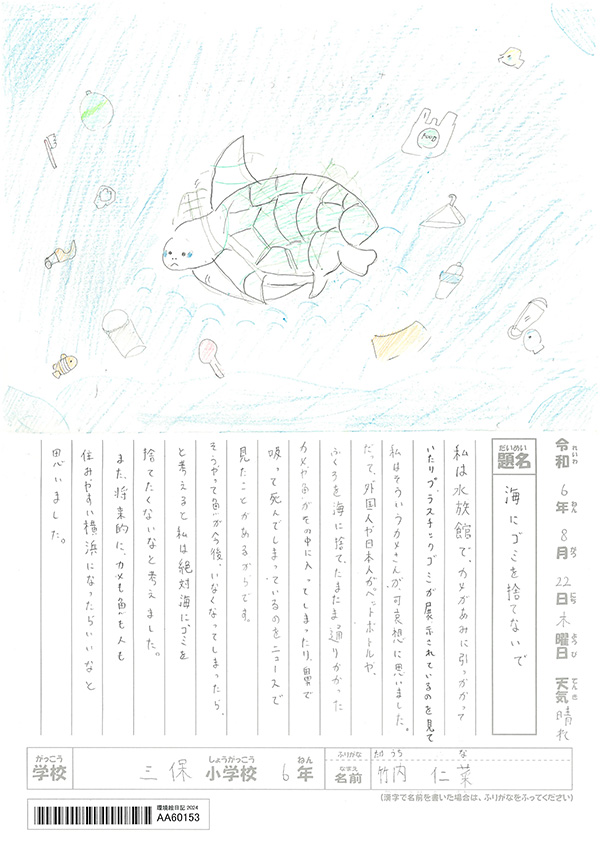 令和6年8月22日木曜日 天気晴れ
れいわ ねん がつ にち ようび てんき
だいめい
題名 海にゴミを捨てないで
私は水族館で、カメがあみに引っかかって
いたりプラスチックゴミが展示されているのを見て
私はそういうカメさんが可哀想に思いました。
だって、外国人や日本人がペットボトルや、
ふくろを海に捨て、たまたま通りかかった
カメや魚がその中に入ってしまったり、胃で
吸って死んでしまっているのをニュースで
見たことがあるからです。
そうやって魚が今後、いなくなってしまったら、
と考えると私は絶対海にゴミを
捨てたくないなと考えました。
また、将来的に、カメも魚も人も
住みやすい横浜になったらいいなと
思いました。
がっこう しょうがっこう ねん
学校 三保 小学校 6年
ふりがな たけ うち な
なまえ
名前 竹内 仁菜
(漢字で名前を書いた場合は、ふりがなをふってください)
環境絵日記2024
AA60153